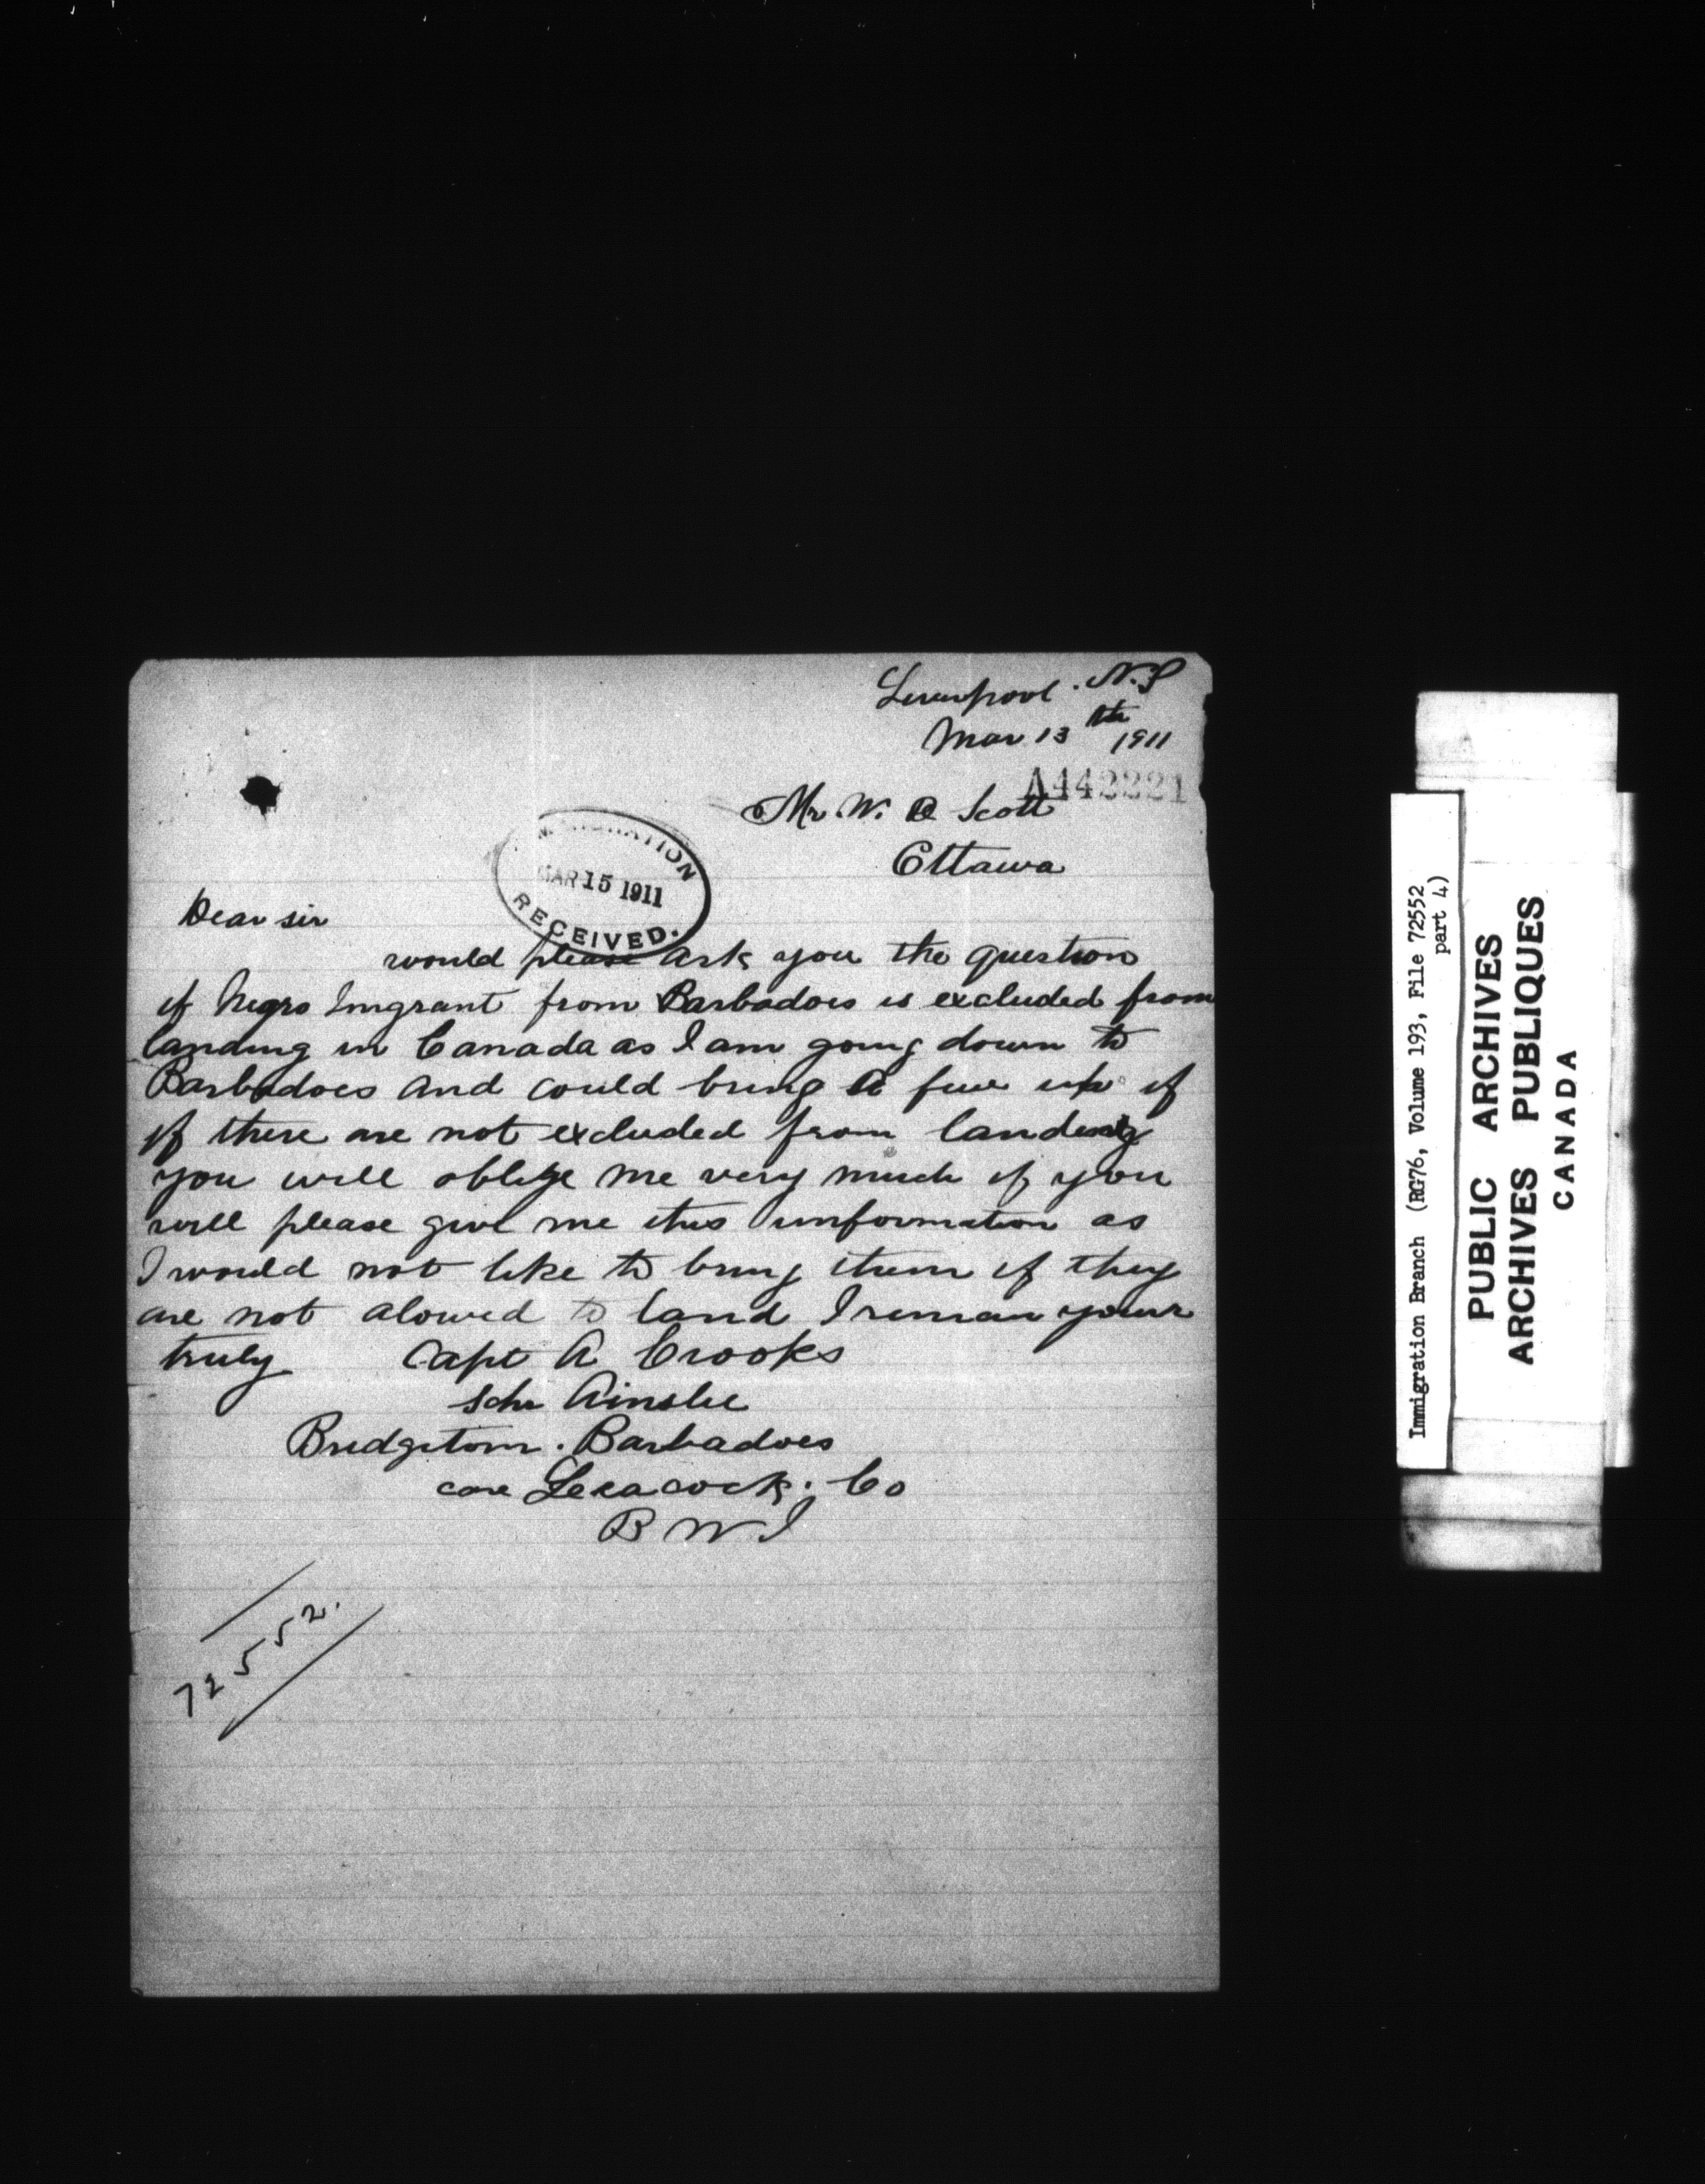 Liverpool. N.S
Mar 13th 1911
A442221
Mr. W. D Scott
Ottawa
IMMIGRATION
MAR 15 1911
RECEIVED.
Dear sir
would please ask you the question
if Negro Imgrant from Barbadoes is excluded from
landing in Canada as I am going down to
Barbadoes and could bring a few up if
if there are not excluded from landing
you will oblige me very much if you
will please give me this information as
I would not like to bring them if they
are not alowed to land I remain yours
truly Capt A Crooks
schr Ainslie
Bridgetown. Barbadoes
care Leacock. Co
B W I
72552.
Immigration Branch (RG76, Volume 193, File 72552
part 4)
PUBLIC ARCHIVES
ARCHIVES PUBLIQUES
CANADA